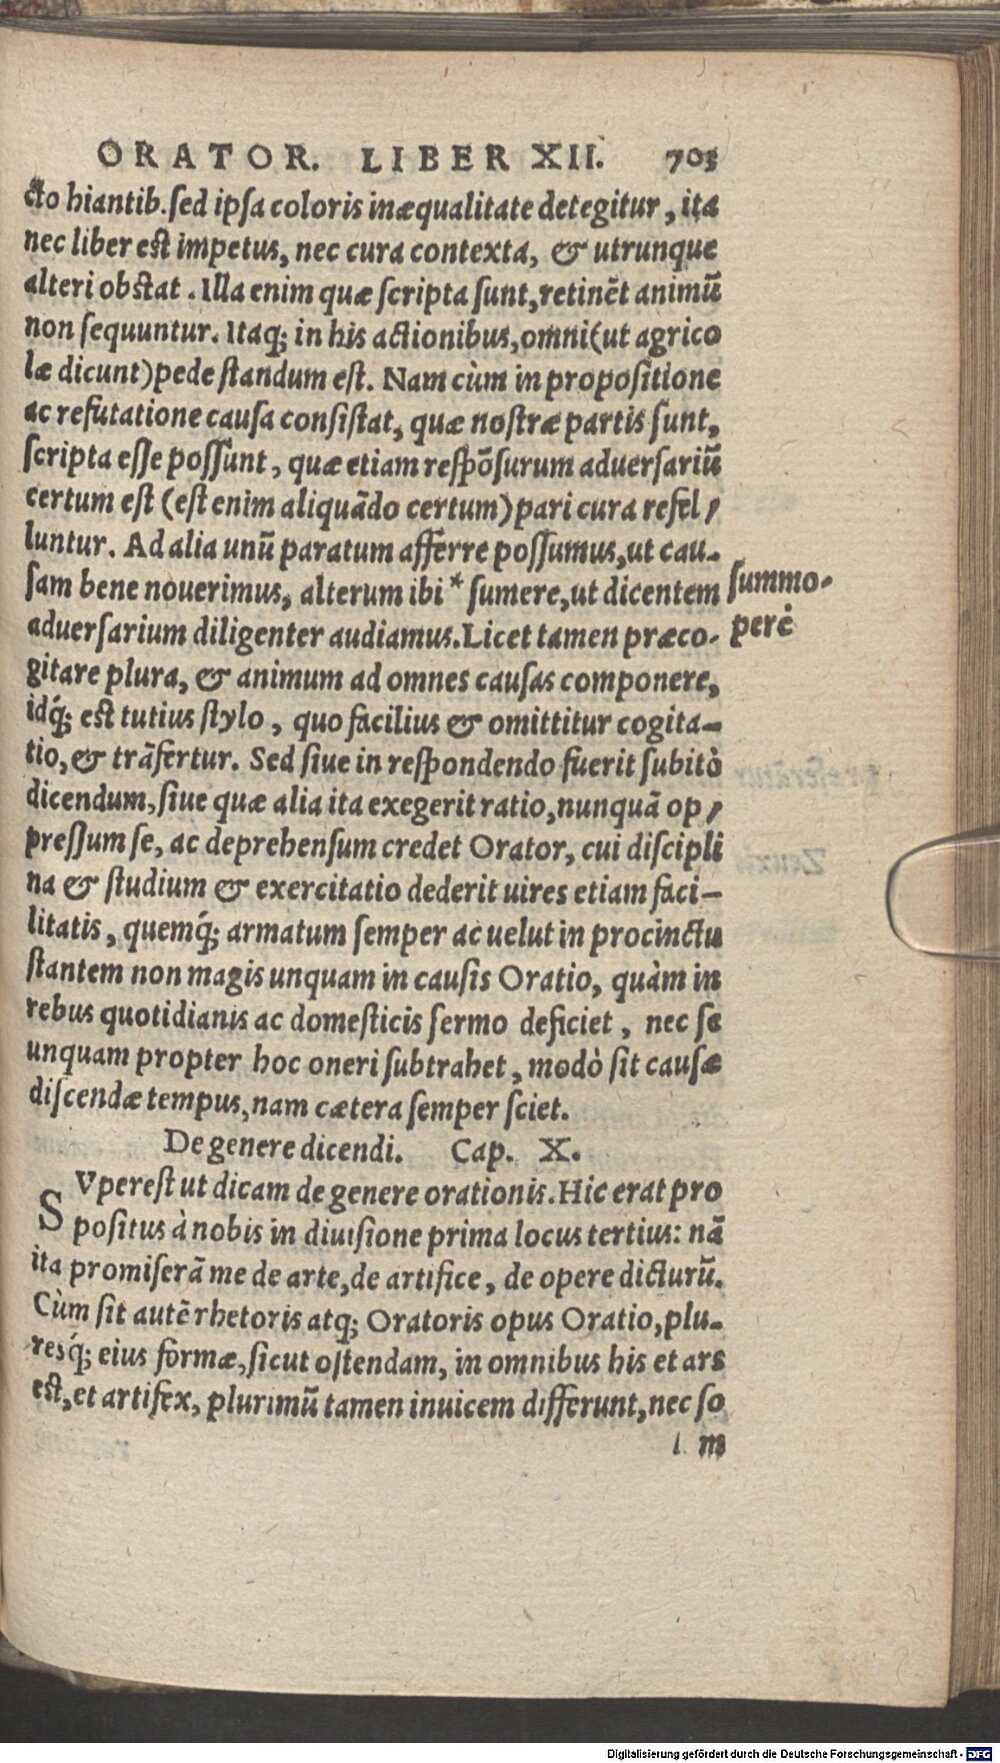 ORATOR. LIBER XII. 703
cto hiantib. sed ipsa coloris inæqualitate detegitur, ita
nec liber est impetus, nec cura contexta, & utrunque
alteri obstat. Illa enim quæ scripta sunt, retinēt animū
non sequuntur. Itaq; in his actionibus, omni (ut agrico
læ dicunt) pede standum est. Nam cùm in propositione
ac refutatione causa consistat, quæ nostræ partis sunt,
scripta esse possunt, quæ etiam respōsurum aduersariū
certum est (est enim aliquādo certum) pari cura refel/
luntur. Ad alia unū paratum afferre possumus, ut cau-
sam bene nouerimus, alterum ibi * sumere, ut dicentem
summo-
aduersarium diligenter audiamus. Licet tamen præco-
perè
gitare plura, & animum ad omnes causas componere,
idq́; est tutius stylo, quo facilius & omittitur cogita-
tio, & trāsfertur. Sed siue in respondendo fuerit subitò
dicendum, siue quæ alia ita exegerit ratio, nunquā op/
pressum se, ac deprehensum credet Orator, cui discipli
na & studium & exercitatio dederit uires etiam faci-
litatis, quemq́; armatum semper ac uelut in procinctu
stantem non magis unquam in causis Oratio, quàm in
rebus quotidianis ac domesticis sermo deficiet, nec se
unquam propter hoc oneri subtrahet, modò sit causæ
discendæ tempus, nam cætera semper sciet.
De genere dicendi. Cap. X.
SVperest ut dicam de genere orationis. Hic erat pro
positus à nobis in diuisione prima locus tertius: nā
ita promiserā me de arte, de artifice, de opere dicturū.
Cùm sit autē rhetoris atq; Oratoris opus Oratio, plu-
resq́; eius formæ, sicut ostendam, in omnibus his et ars
est, et artifex, plurimū tamen inuicem differunt, nec so
lum
Digitalisierung gefördert durch die Deutsche Forschungsgemeinschaft - DFG